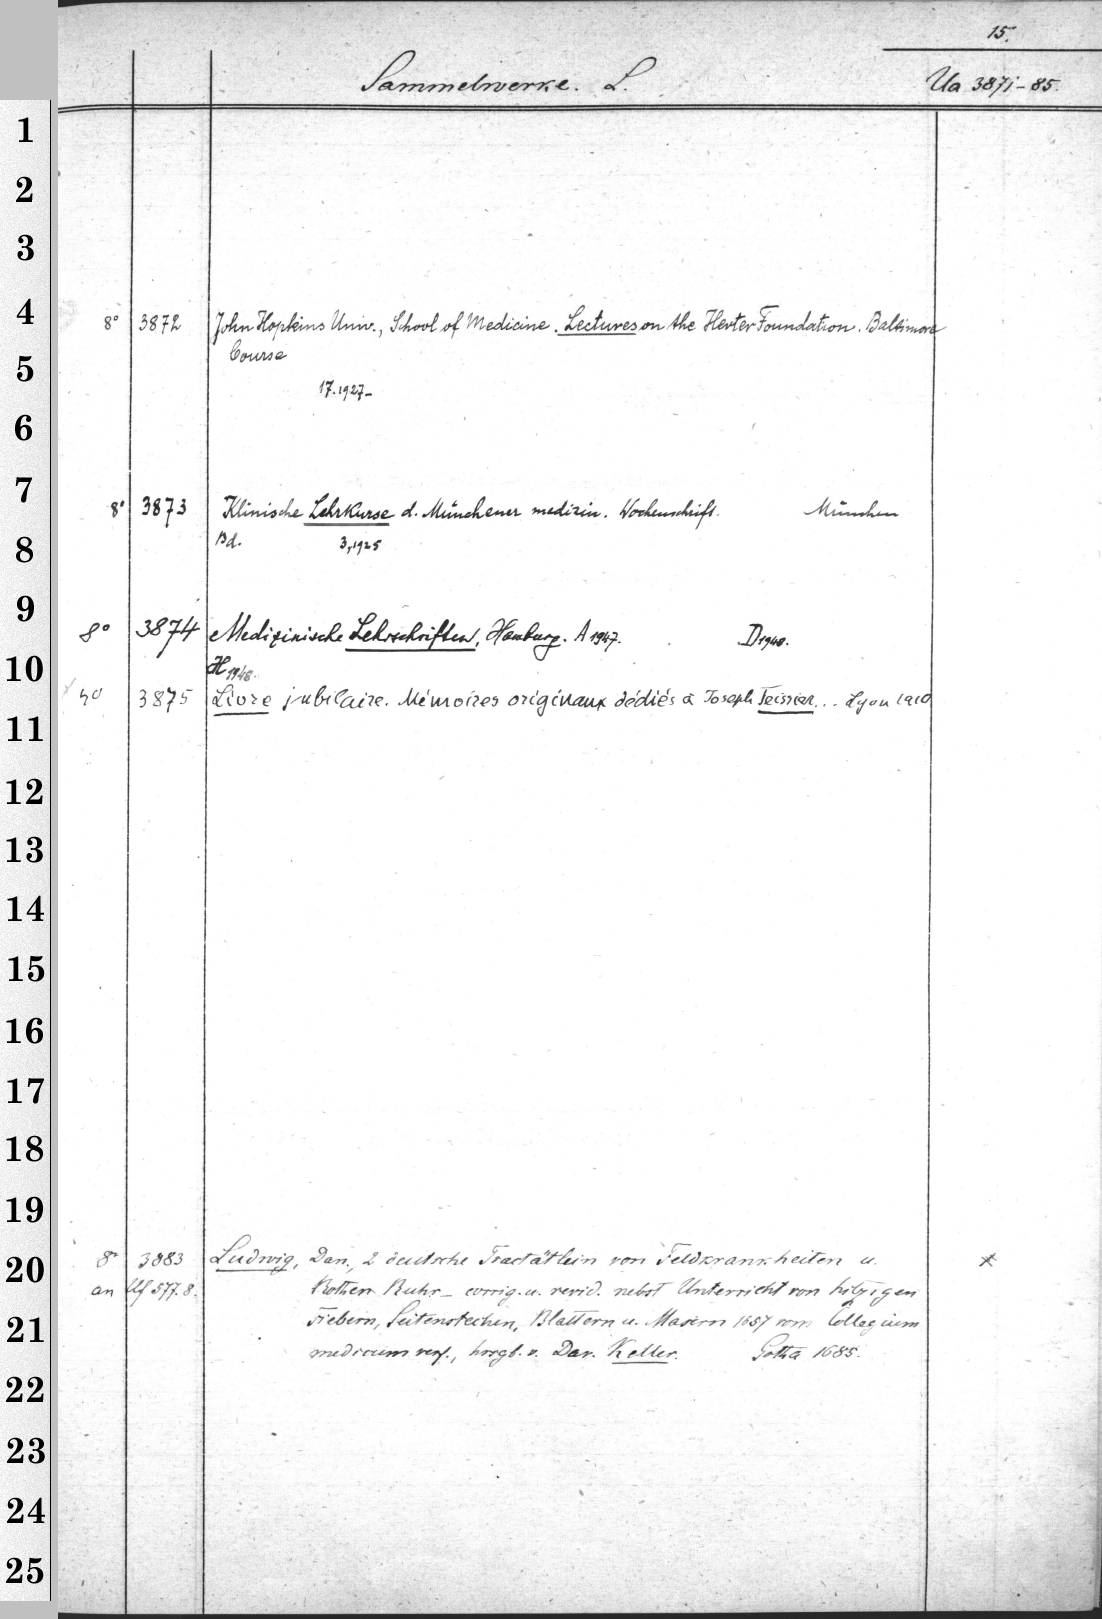 15.
Sammelwerke. L. Ua 3871-85.
1
2
3
4
8° 3872 John Hopkins Univ., School of Medicine. Lectures on the Herter Foundation. Baltimore
Course
5
17.1927-
6
7
8° 3873 Klinische Lehrkurse d. Münchener medizin. Wochenschrift. München
Bd. 3,1925
8
9
8° 3874 Medizinische Lehrschriften, Hamburg. A 1947. D 1948.
10
H 1948.
4° 3875 Livre jubilaire. Mémoires originaux dédiés à Joseph Teissier... Lyon 1910
11
12
13
14
15
16
17
18
19
8° 3883 Ludwig, Dan., 2 deutsche Tractätlein von Feldkrankheiten u. x
20
an Uf 577.8. Rothen Ruhr - corrig. u. revid. nebst Unterricht von hitzigen
21
Fiebern, Seitenstechen, Blattern u. Masern 1657 vom Collegium
medicum verf., hrsgb. v. Dav. Keller. Gotha 1685.
22
23
24
25